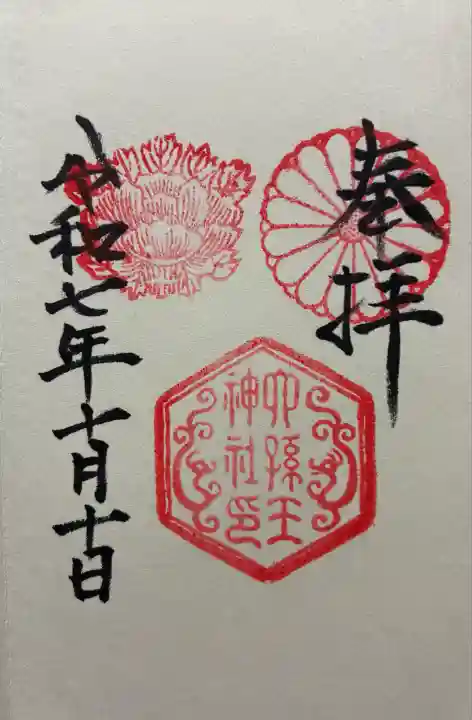 奉拝
六孫王
神社印
令和七年十月十日